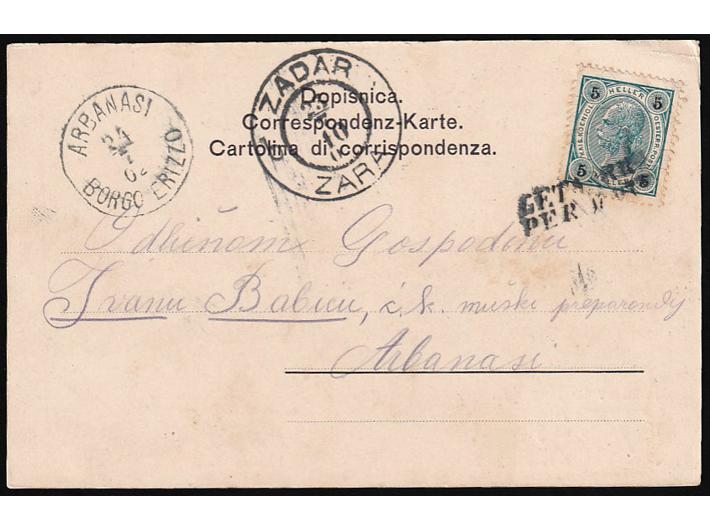 ARBANASI
24
BORGO ERIZZO
ZADAR
10
ZARA
Dopisnica.
Correspondenz-Karte.
Cartolina di corrispondenza.
5 HELLER 5
KAIS. KOENIGL.
OESTERR. POST
5 HELLER 5
Gospodinu
Ivanu Babiću, muški preparandij
Arbanasi